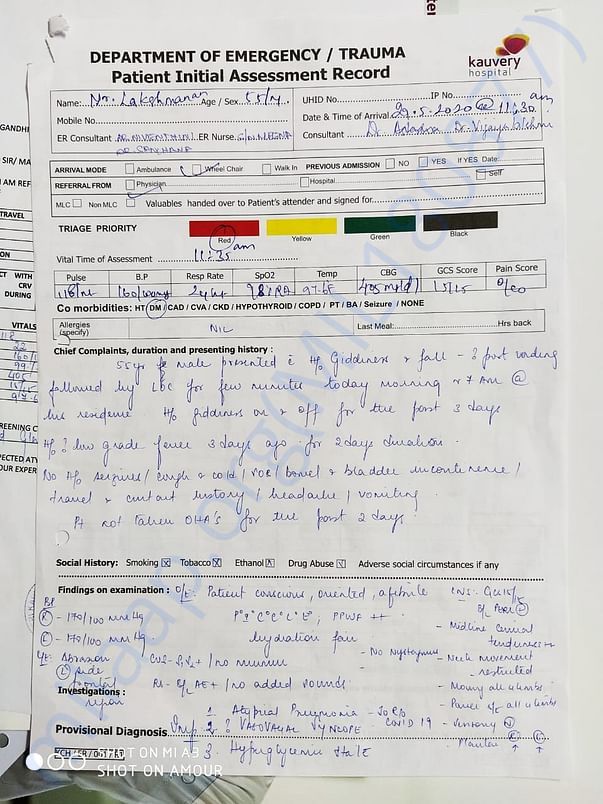 DEPARTMENT OF EMERGENCY / TRAUMA
Patient Initial Assessment Record
kauvery
hospital
Name: Mr. Lakshmanan Age / Sex 55/M
UHID No. IP No.
Mobile No.
Date & Time of Arrival 29.5.2020 @ 11:30 am
ER Consultant ER Nurse
Consultant Dr.
ARRIVAL MODE Ambulance Wheel Chair Walk In PREVIOUS ADMISSION NO YES If YES Date:
REFERRAL FROM Physician Hospital Self
MLC Non MLC Valuables handed over to Patient's attender and signed for
TRIAGE PRIORITY
Red Yellow Green Black
Vital Time of Assessment 11:35 am
Pulse B.P Resp Rate SpO2 Temp CBG GCS Score Pain Score
118/m 98% RA 405 mg/dl 15/15
Co morbidities: HT / DM / CAD / CVA / CKD / HYPOTHYROID / COPD / PT / BA / Seizure / NONE
Allergies (specify) NIL Last Meal: Hrs back
Chief Complaints, duration and presenting history :
55 yr male presented c H/o Giddiness & fall - ? post voiding
followed by LOC for few minutes today morning 7 Am @
his residence H/o giddiness on & off for the past 3 days
H/o ? low grade fever 3 days ago for 2 days duration.
No H/o seizures / cough & cold / / bowel & bladder incontinence /
travel & contact history / headache / vomiting.
Pt not taken OHA's for the past 2 days.
Social History: Smoking Tobacco Ethanol Drug Abuse Adverse social circumstances if any
Findings on examination : O/E: Patient conscious, oriented, afebrile
CNS: GCS 15/15
BP
R - 170/100 mmHg
L - 170/100 mmHg
hydration fair
- No Nystagmus
- Midline cervical
tenderness +
- Neck movement
restricted
L/E: Abrasion
L side
frontal
region
CVS - S1S2 + / no murmur
RS - AE + / no added sounds
- Moving all 4 limbs
- Power all 4 limbs
- Sensory
- Plantar
Investigations :
1. Atypical Pneumonia -
COVID 19
Provisional Diagnosis Imp: 2. ? VASOVAGAL SYNCOPE
3. Hyperglycemic State
SHOT ON MI A3
SHOT ON AMOUR
GANDHI
SIR/ MA
I AM REF
TRAVEL
WITH
CRV
DURING
VITALS